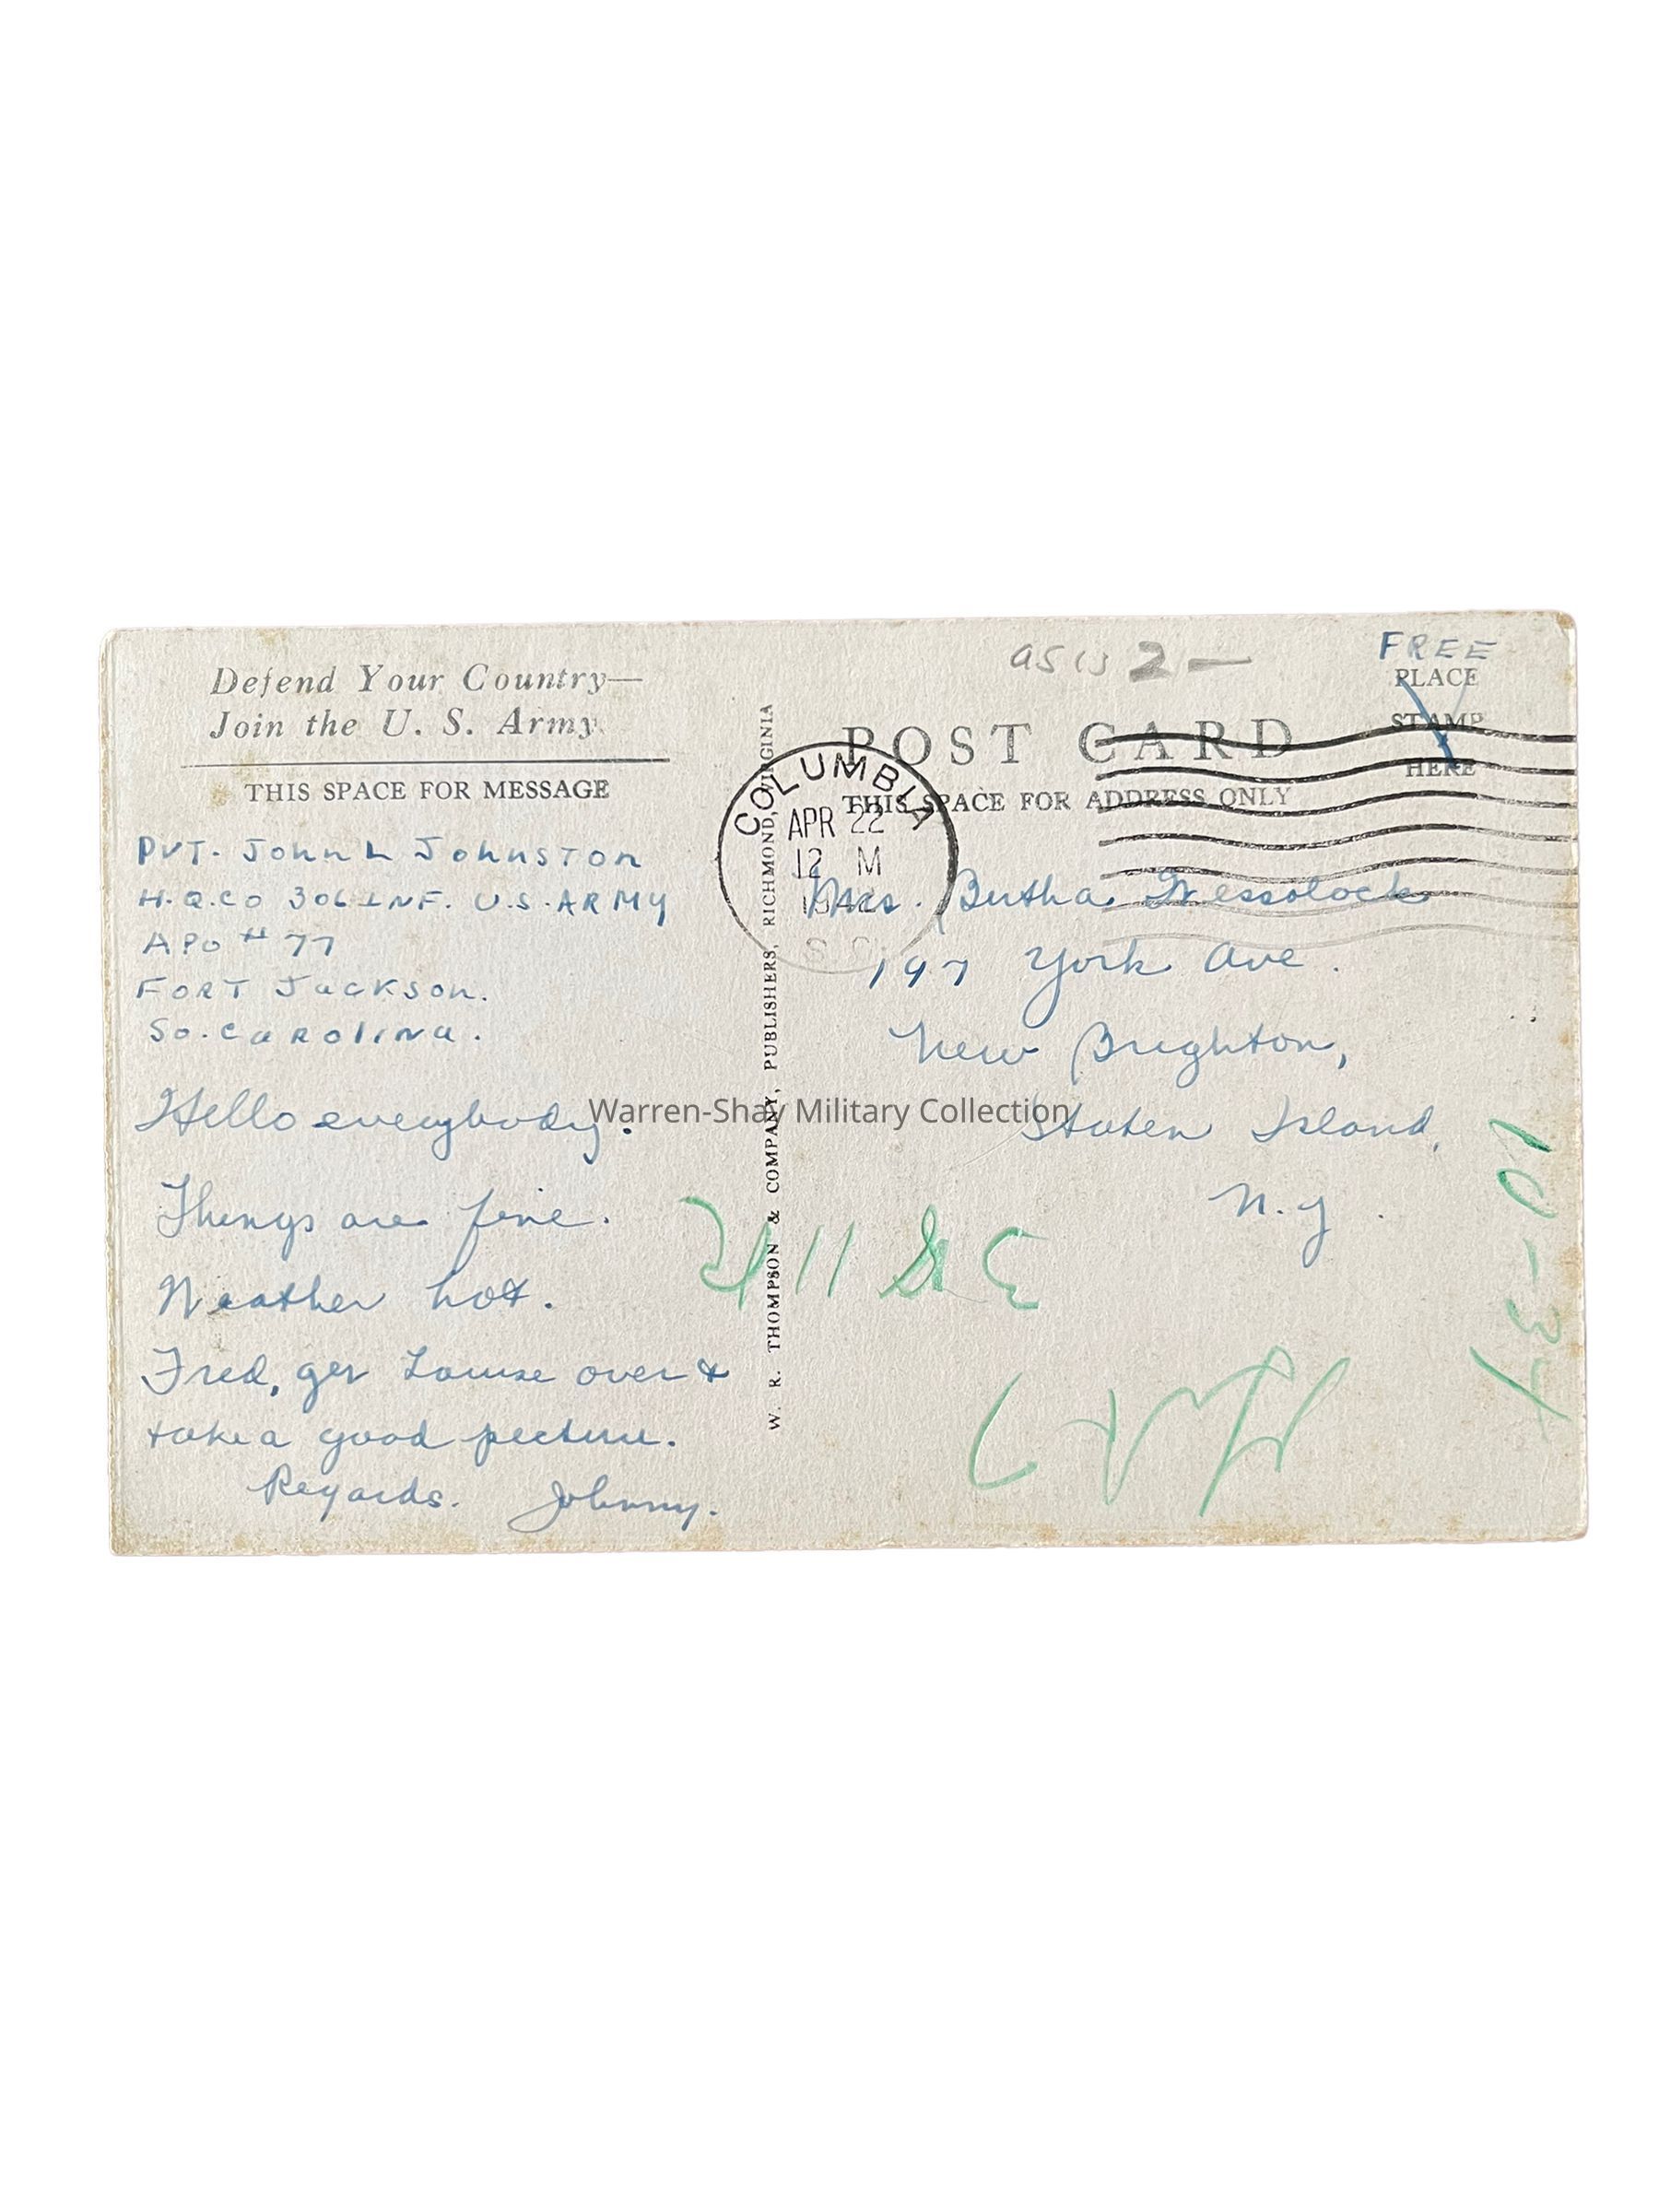 Defend Your Country—
Join the U. S. Army.
THIS SPACE FOR MESSAGE
PVT. JOHN L JOHNSTON
H.Q.CO 306 INF. U.S. ARMY
APO # 77
FORT JACKSON.
SO. CAROLINA.
Hello everybody.
Things are fine.
Weather hot.
Fred, get Louise over &
take a good picture.
Regards. Johnny.
W. R. THOMPSON & COMPANY, PUBLISHERS, RICHMOND, VIRGINIA
2 —
FREE
PLACE
STAMP
HERE
POST CARD
THIS SPACE FOR ADDRESS ONLY
COLUMBIA
APR 22
12 M
1942
S.C.
Mrs. Bertha Wessolock
197 York Ave.
New Brighton,
Staten Island,
N.Y.
Warren-Shay Military Collection